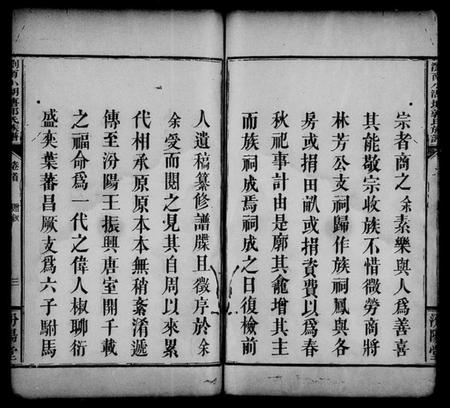 宗者商之余素樂與人爲善喜
其能敬宗收族不惜微勞商將
林芳公支祠歸作族祠鳳與各
房或捐田畝或捐資費以爲春
秋祀事計由是廓其龕增其主
而族祠成焉祠成之日復檢前
人遺稿纂修譜牒且徵序於余
余愛而閱之見其自周以來累
代相承原原本本無稍紊淆遞
傳至汾陽王振興唐室開千載
之福命爲一代之偉人椒聊衍
盛奕葉蕃昌厥支爲六子駙馬
卷首
三
汾陽堂